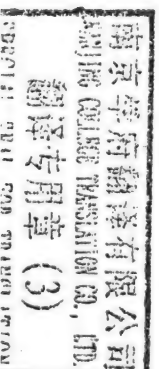 南京学府翻译有限公司
NANJING COLLEGE TRANSLATION CO., LTD.
翻译专用章 (3)
SPECIAL SEAL FOR TRANSLATION